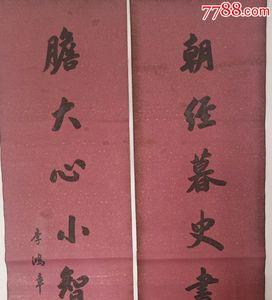 7788.com
朝经暮史書
膽大心小智
李鴻章